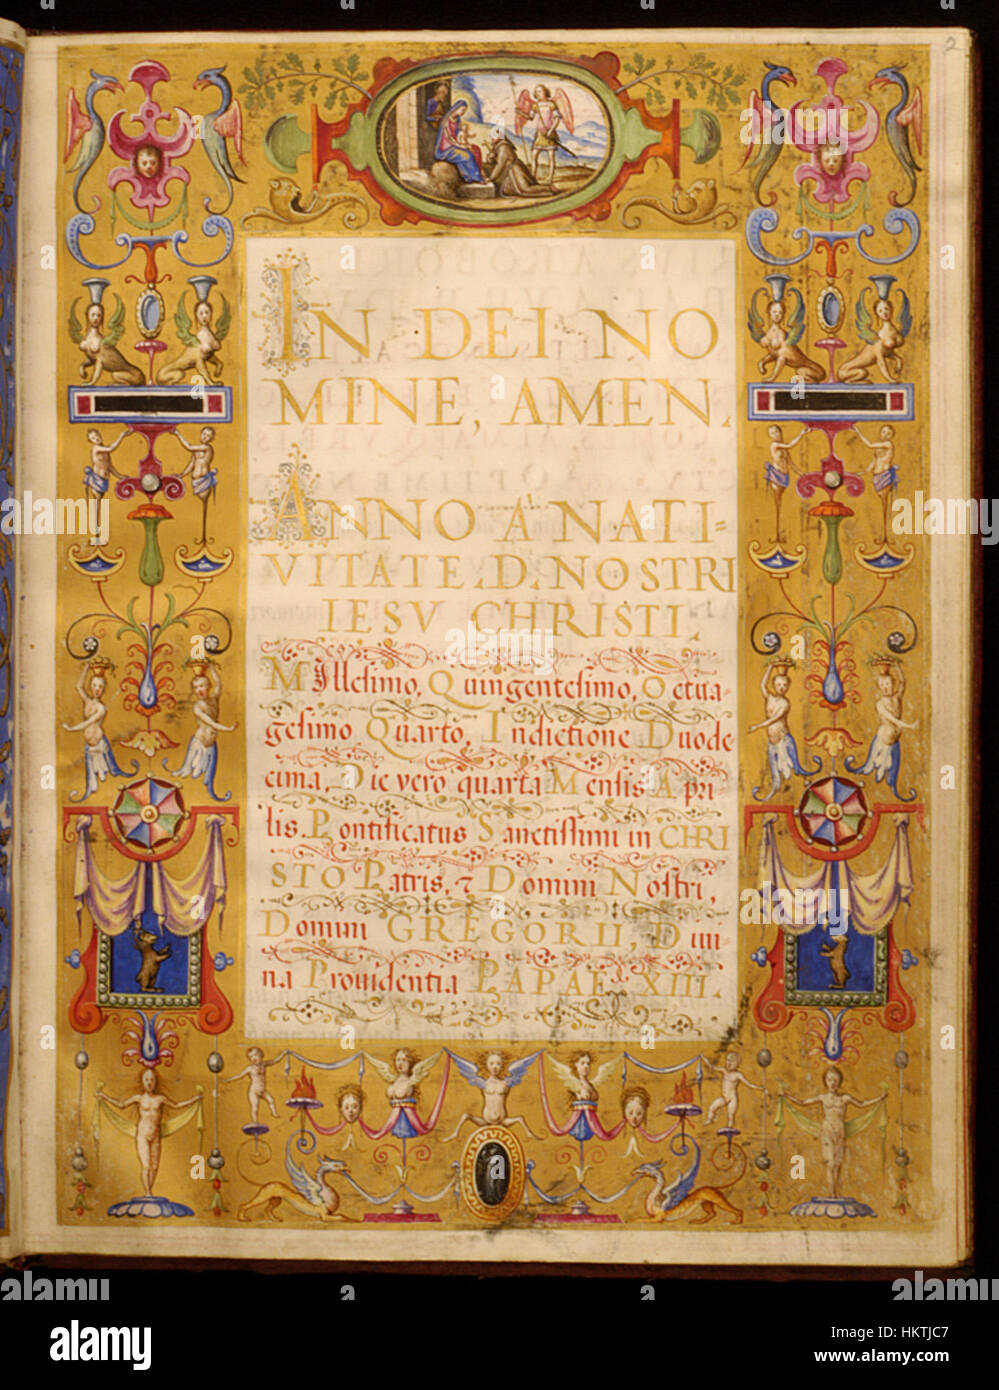 2
IN DEI NO
MINE, AMEN.
ANNO A NATI-
VITATE, D, NOSTRI
IESV CHRISTI,
Millesimo, Quingentesimo, Octua-
gesimo Quarto, Indictione Duode
cima, Die vero quarta Mensis Apri
lis, Pontificatus Sanctissimi in CHRI
STO Patris, & Domini Nostri,
Domini GREGORII, Diui-
na Prouidentia PAPAE XIII.
alamy
Image ID: HKTJC7
www.alamy.com